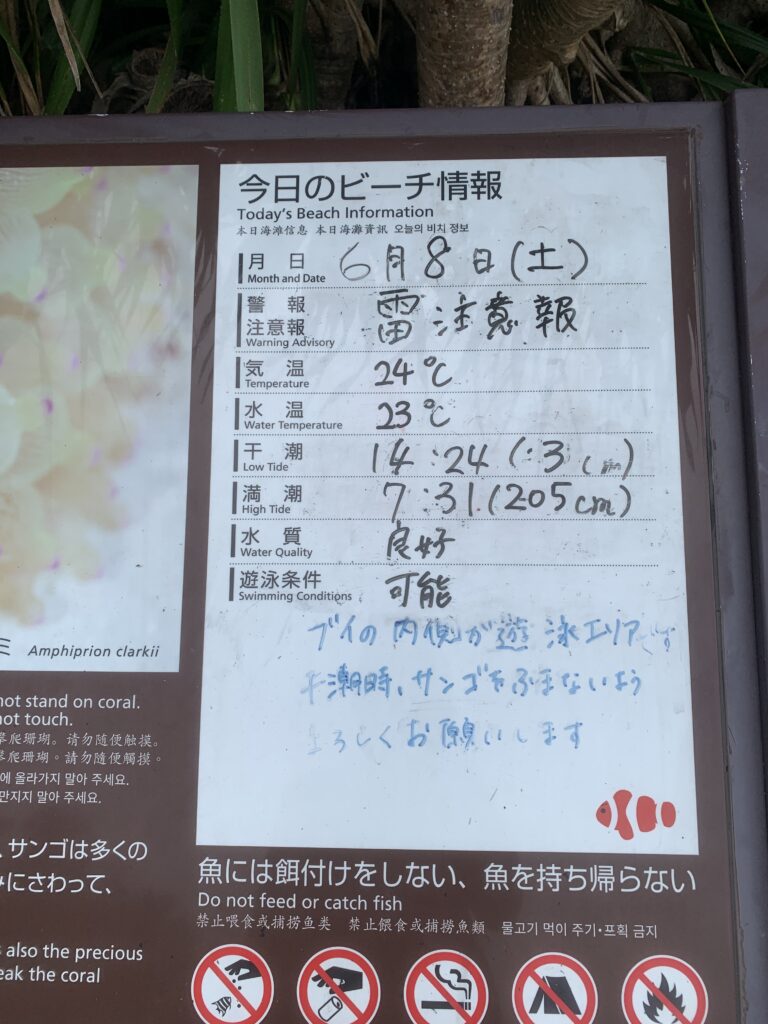 今日のビーチ情報
Today's Beach Information
本日海滩信息 本日海灘資訊 오늘의 비치 정보
月 日 6月8日(土)
Month and Date
警 報
注意報 雷注意報
Warning Advisory
気 温 24℃
Temperature
水 温 23℃
Water Temperature
干 潮 14:24 (
Low Tide
満 潮 7:31 (205cm)
High Tide
水 質 良好
Water Quality
遊泳条件 可能
Swimming Conditions
ブイの内側が遊泳エリアです
干潮時、サンゴをふまないよう
よろしくお願いします
ミ Amphiprion clarkii
not stand on coral.
not touch.
攀爬珊瑚。请勿随便触摸。
攀爬珊瑚。請勿隨便觸摸。
에 올라가지 말아 주세요.
만지지 말아 주세요.
、サンゴは多くの
にさわって、
also the precious
eak the coral
魚には餌付けをしない、魚を持ち帰らない
Do not feed or catch fish
禁止喂食或捕捞鱼类 禁止餵食或捕撈魚類 물고기 먹이 주기·프획 금지